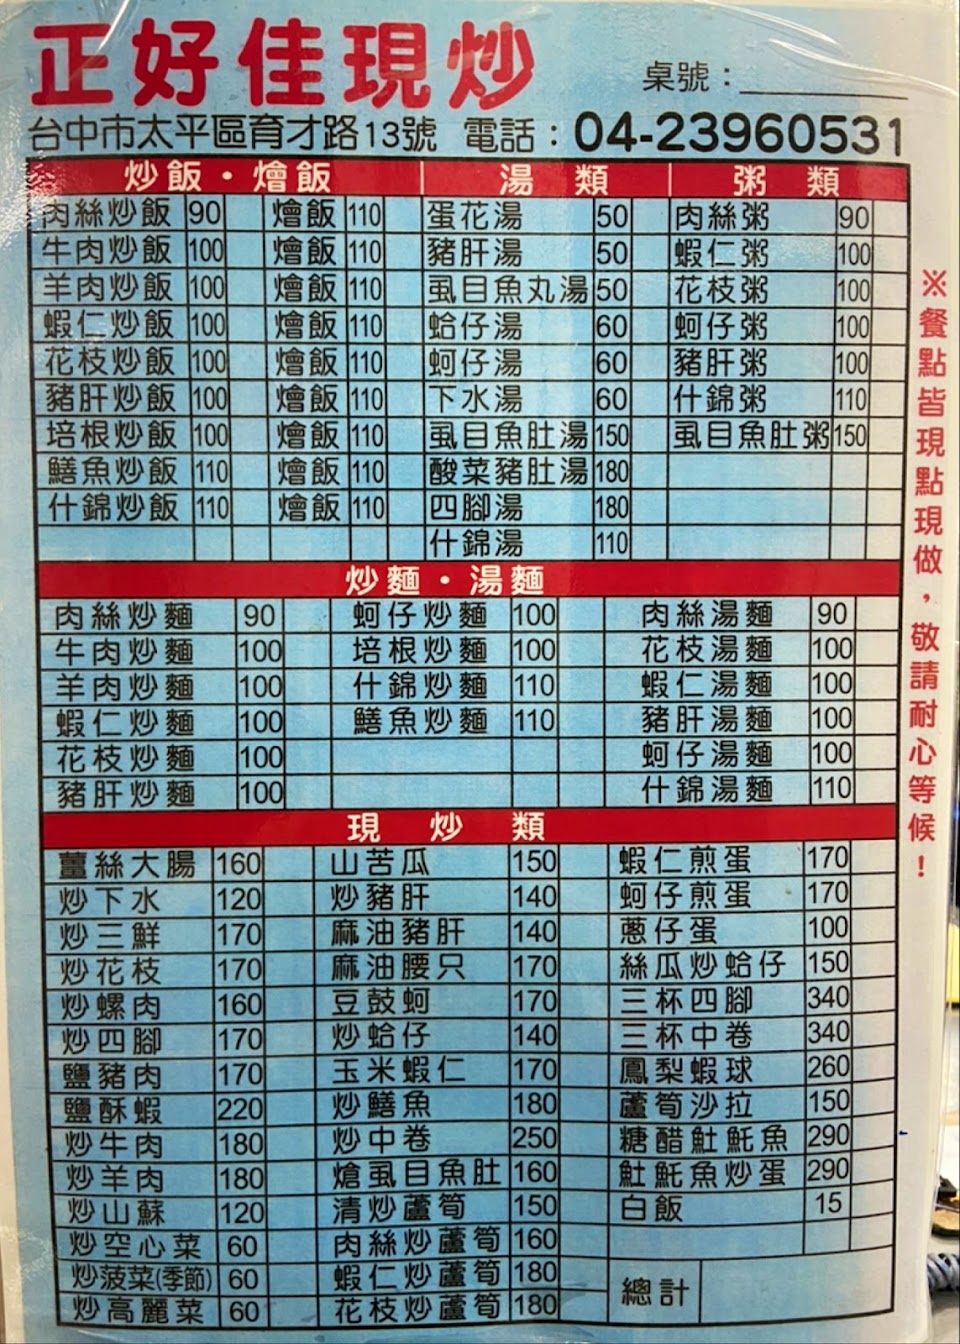 正好佳現炒
桌號：
台中市太平區育才路13號 電話：04-23960531
炒飯・燴飯 湯類 粥類
肉絲炒飯 90 燴飯 110 蛋花湯 50 肉絲粥 90
牛肉炒飯 100 燴飯 110 豬肝湯 50 蝦仁粥 100
羊肉炒飯 100 燴飯 110 虱目魚丸湯 50 花枝粥 100
蝦仁炒飯 100 燴飯 110 蛤仔湯 60 蚵仔粥 100
花枝炒飯 100 燴飯 110 蚵仔湯 60 豬肝粥 100
豬肝炒飯 100 燴飯 110 下水湯 60 什錦粥 110
培根炒飯 100 燴飯 110 虱目魚肚湯 150 虱目魚肚粥 150
鱔魚炒飯 110 燴飯 110 酸菜豬肚湯 180
什錦炒飯 110 燴飯 110 四腳湯 180
什錦湯 110
炒麵・湯麵
肉絲炒麵 90 蚵仔炒麵 100 肉絲湯麵 90
牛肉炒麵 100 培根炒麵 100 花枝湯麵 100
羊肉炒麵 100 什錦炒麵 110 蝦仁湯麵 100
蝦仁炒麵 100 鱔魚炒麵 110 豬肝湯麵 100
花枝炒麵 100 蚵仔湯麵 100
豬肝炒麵 100 什錦湯麵 110
現炒類
薑絲大腸 160 山苦瓜 150 蝦仁煎蛋 170
炒下水 120 炒豬肝 140 蚵仔煎蛋 170
炒三鮮 170 麻油豬肝 140 蔥仔蛋 100
炒花枝 170 麻油腰只 170 絲瓜炒蛤仔 150
炒螺肉 160 豆鼓蚵 170 三杯四腳 340
炒四腳 170 炒蛤仔 140 三杯中卷 340
鹽豬肉 170 玉米蝦仁 170 鳳梨蝦球 260
鹽酥蝦 220 炒鱔魚 180 蘆筍沙拉 150
炒牛肉 180 炒中卷 250 糖醋魠魠魚 290
炒羊肉 180 熗虱目魚肚 160 魠魠魚炒蛋 290
炒山蘇 120 清炒蘆筍 150 白飯 15
炒空心菜 60 肉絲炒蘆筍 160
炒菠菜(季節) 60 蝦仁炒蘆筍 180 總計
炒高麗菜 60 花枝炒蘆筍 180
※餐點皆現點現做，敬請耐心等候！